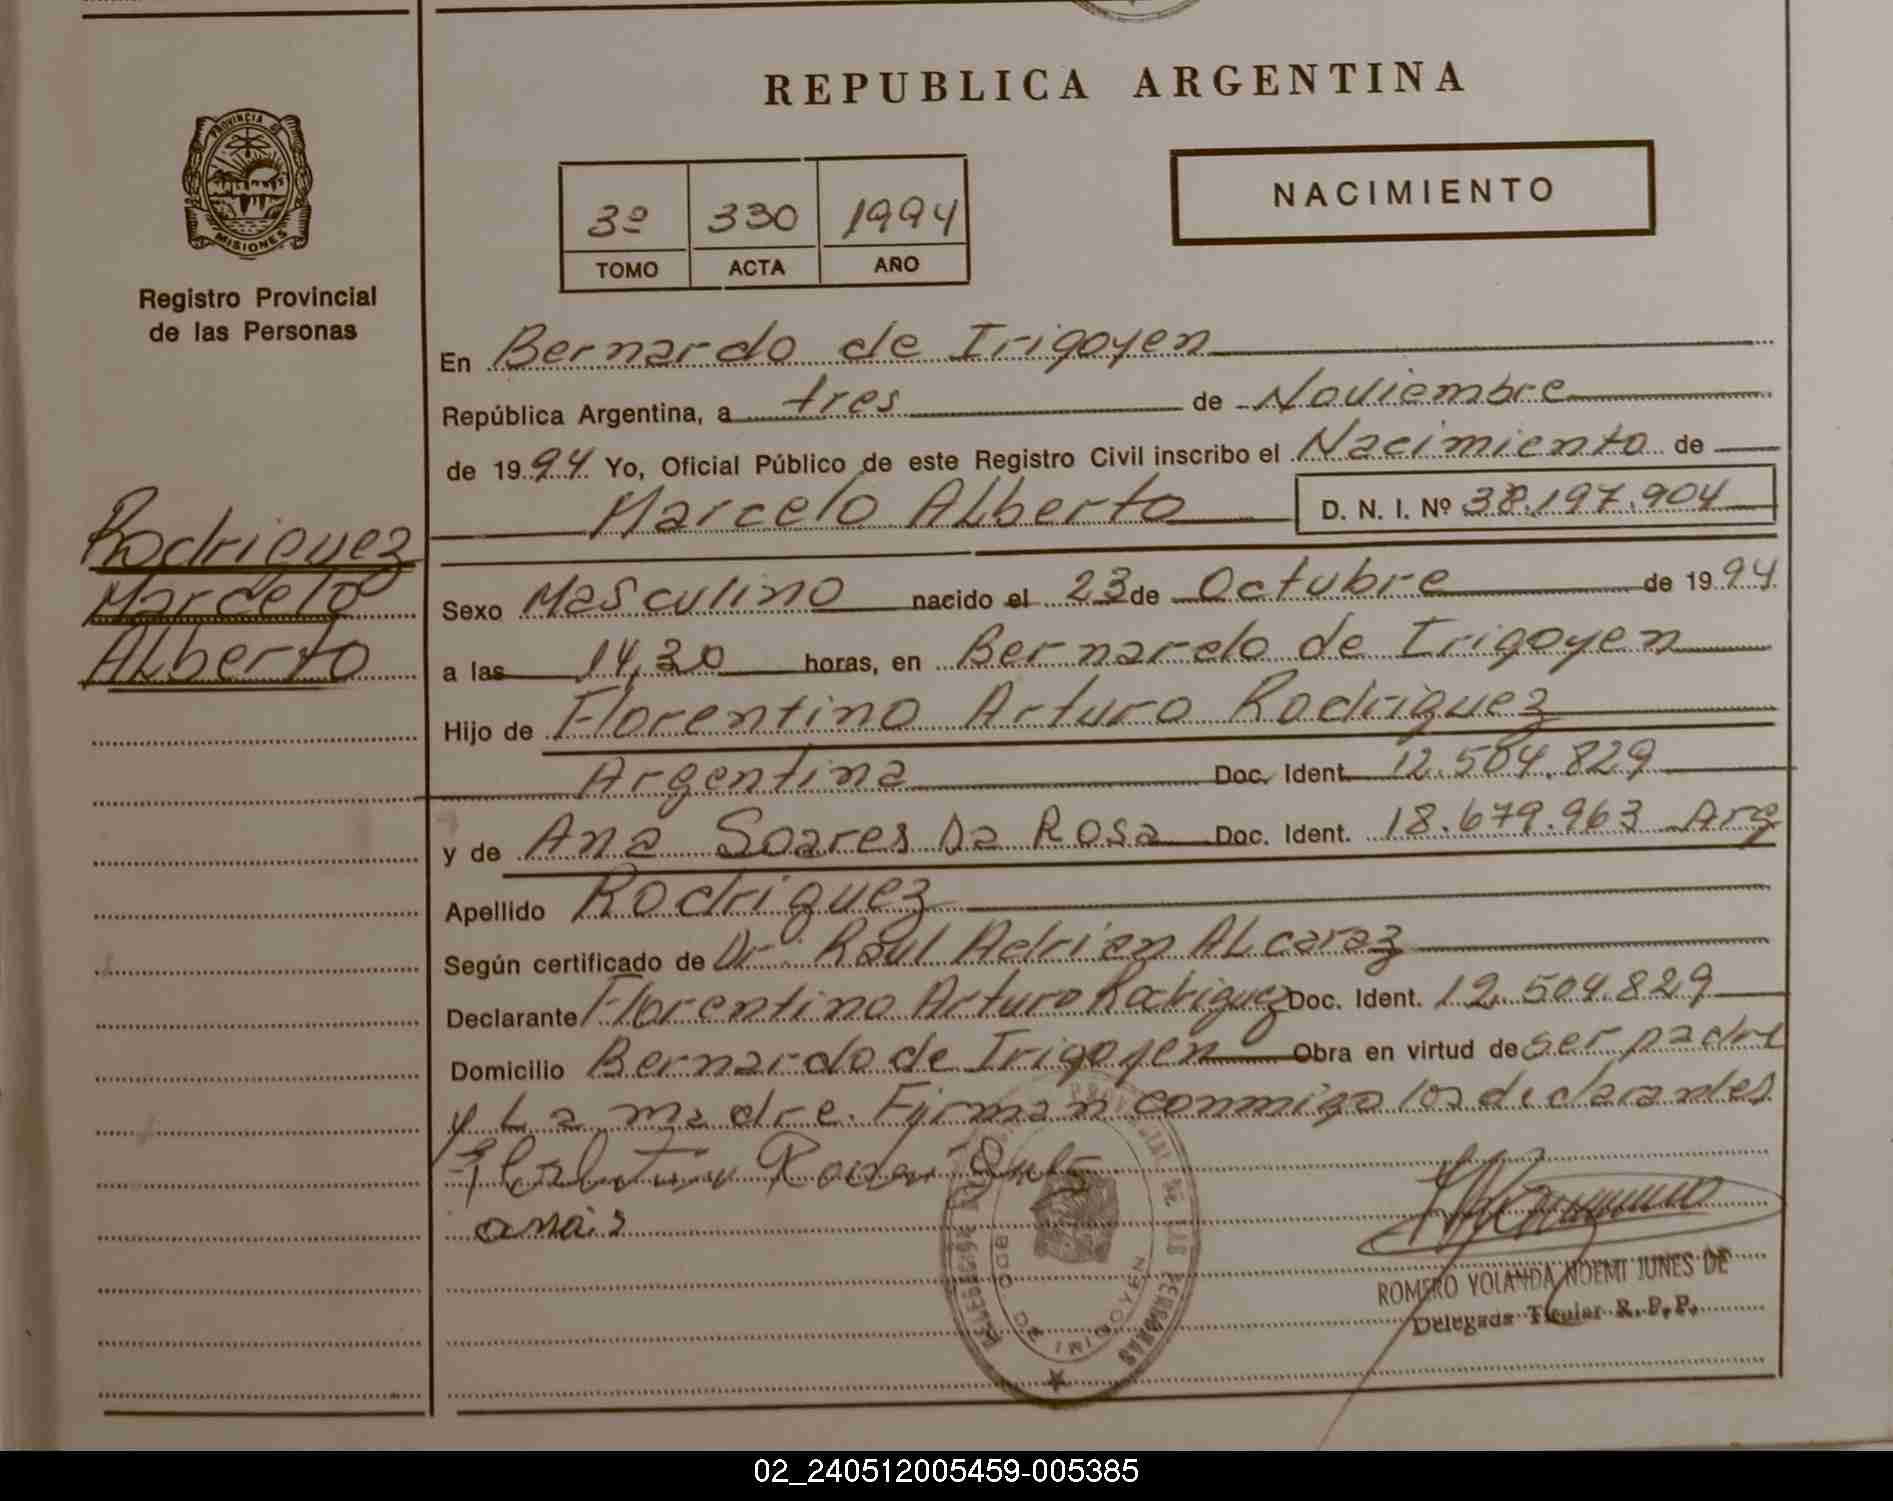 REPUBLICA ARGENTINA
PROVINCIA DE
MISIONES
Registro Provincial
de las Personas
NACIMIENTO
3º 330 1994
TOMO ACTA AÑO
En Bernardo de Irigoyen
República Argentina, a tres de Noviembre
de 1994 Yo, Oficial Público de este Registro Civil inscribo el Nacimiento de
Marcelo Alberto D. N. I. Nº 38.197.904
Rodriguez
Marcelo
Alberto
Sexo Masculino nacido el 23 de Octubre de 1994
a las 14,30 horas, en Bernardo de Irigoyen
Hijo de Florentino Arturo Rodriguez
Argentina Doc. Ident. 12.504.829
y de Ana Soares Da Rosa Doc. Ident. 18.679.963 Arg
Apellido Rodriguez
Según certificado de Dr. Raul Adrian ALcaraz
Declarante Florentino Arturo Rodriguez Doc. Ident. 12.504.829
Domicilio Bernardo de Irigoyen Obra en virtud de ser padre
y La madre. Firman conmigo los declarantes
ROMERO YOLANDA NOEMI JUNES DE
Delegada Titular R.P.P.
02_240512005459-005385